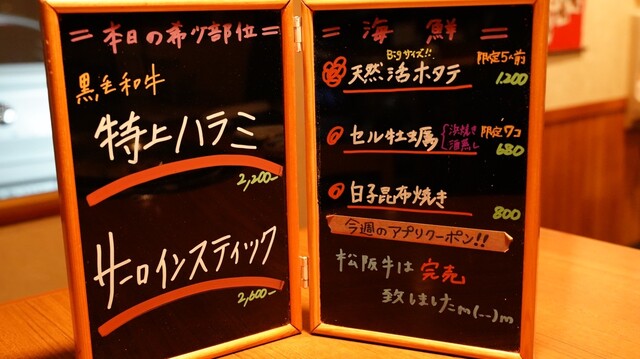 =本日の希少部位=
黒毛和牛
特上ハラミ
2,200-
サーロインスティック
2,600-
=海鮮=
Bigサイズ!!
天然活ホタテ 限定5人前
1,200
セル牡蠣 浜焼き 酒蒸し 限定7コ
680
白子昆布焼き
800
今週のアプリクーポン!!
松阪牛は完売
致しましたm(--)m